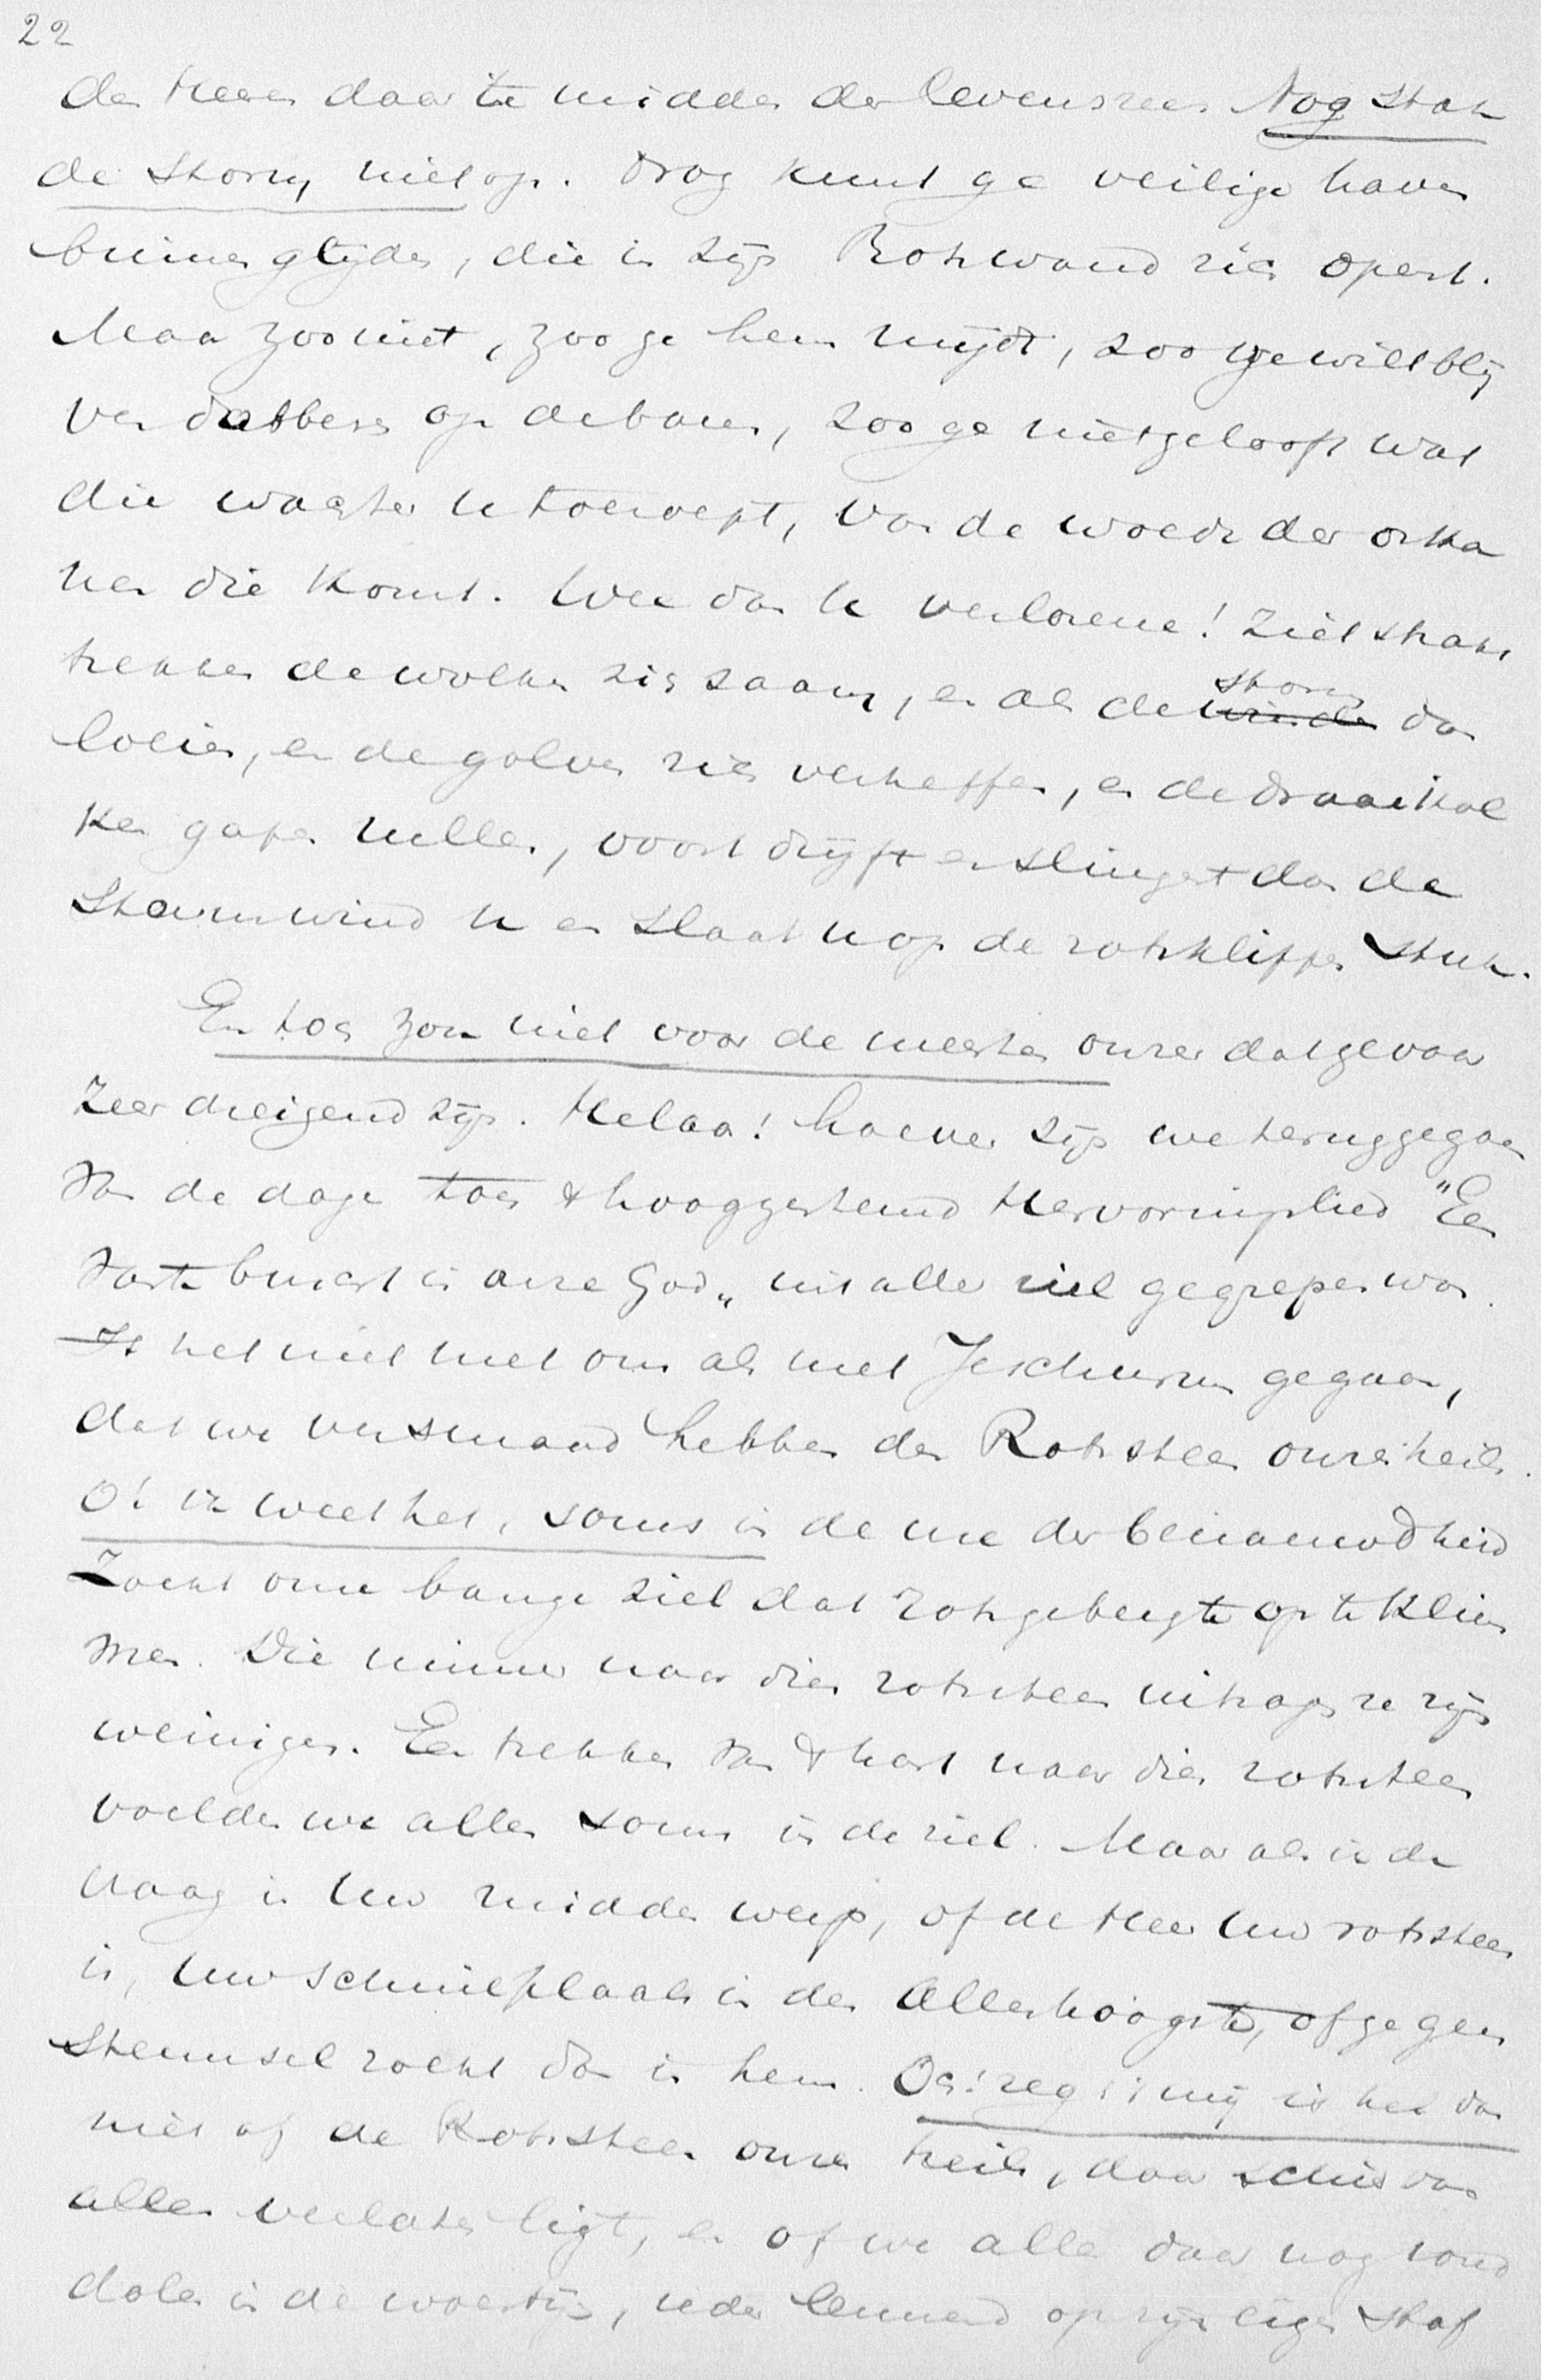 22
den Heer daar te midden der levenszee. Nog stak
de storm niet op. Nog kunt ge veilige haven
binnenglijden, die in zijn Rotswand zich opent.
Maar zoo niet, zoo ge hem mijdt, zoo ge wilt blij
ven dobberen op de baren, zoo ge niet gelooft wat
die wachter U toeroept, van de woede der orka
nen die komt. Wee dan U verlorene! Ziet straks
trekken de wolken zich saam, en als de storm dan
loeien, en de golven zich verheffen, en de draaikol
ken gapen zullen, voort drijft en slingert dan de
Stormwind U en slaat U op de rotsklippen stuk.
En toch zou niet voor de meesten onzer dat gevaar
zeer dreigend zijn. Helaas! hoever zijn we teruggegaan
van de dagen toen 't hooggestemd Hervormingslied "Een
vaste burcht is onze God" uit aller ziel gegrepen was.
Is het niet met ons als met Jeschurun gegaan,
dat we versmaad hebben den Rotssteen onzes heils.
O! ik weet het, soms in de ure der benauwdheid
Zocht onze bange ziel dat rotsgebergte op te klim
men. Die nimmer naar dien rotssteen uitzagen ze zijn
weinigen. Een trekken van 't hart naar dien rotssteen
voelden we allen soms in de ziel. Maar als ik de
vraag in Uw midden werp, of de Heer Uw rotssteen
is, Uw schuilplaats in den Allerhoogste, of ge geen
steunsel zoekt dan in hem. Och! zeg 't mij is het dan
niet of de Rotssteen onzes heils, daar schier van
allen verlaten ligt, en of we allen daar nog rond
dolen in de woestijn, ieder leunend op zijn eigen staf